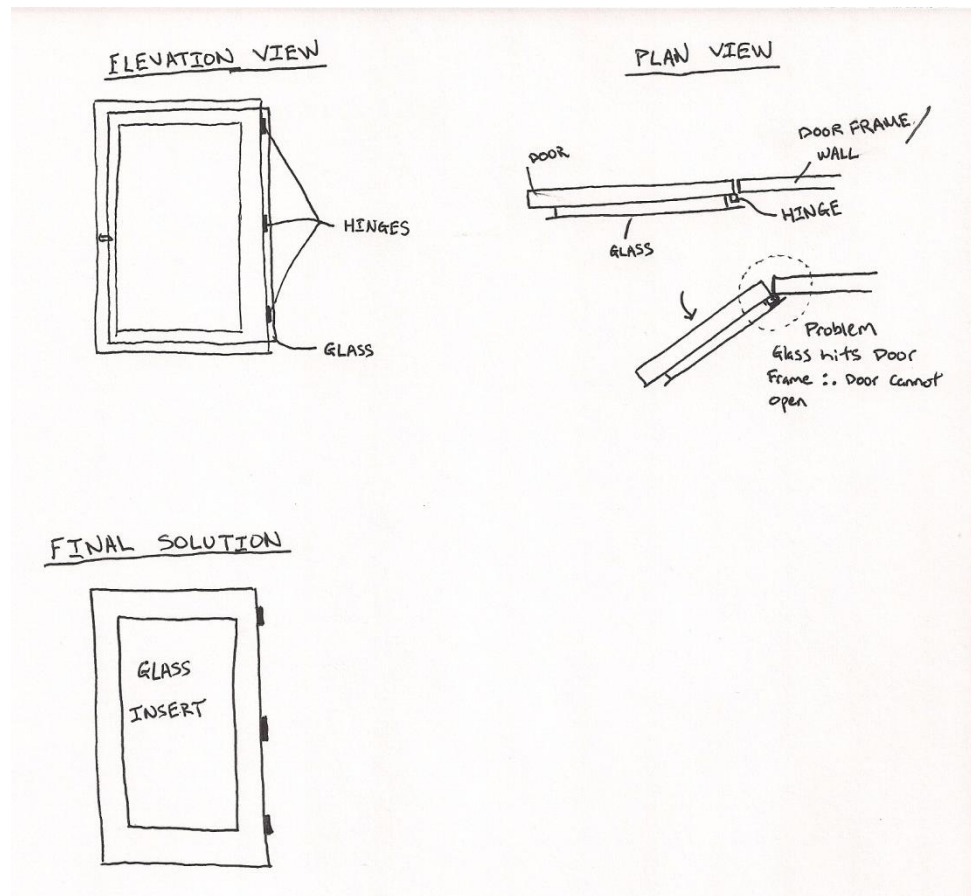 ELEVATION VIEW
HINGES
GLASS
PLAN VIEW
DOOR
DOOR FRAME/
WALL
HINGE
GLASS
Problem
Glass hits Door
Frame ∴ Door cannot
open
FINAL SOLUTION
GLASS
INSERT